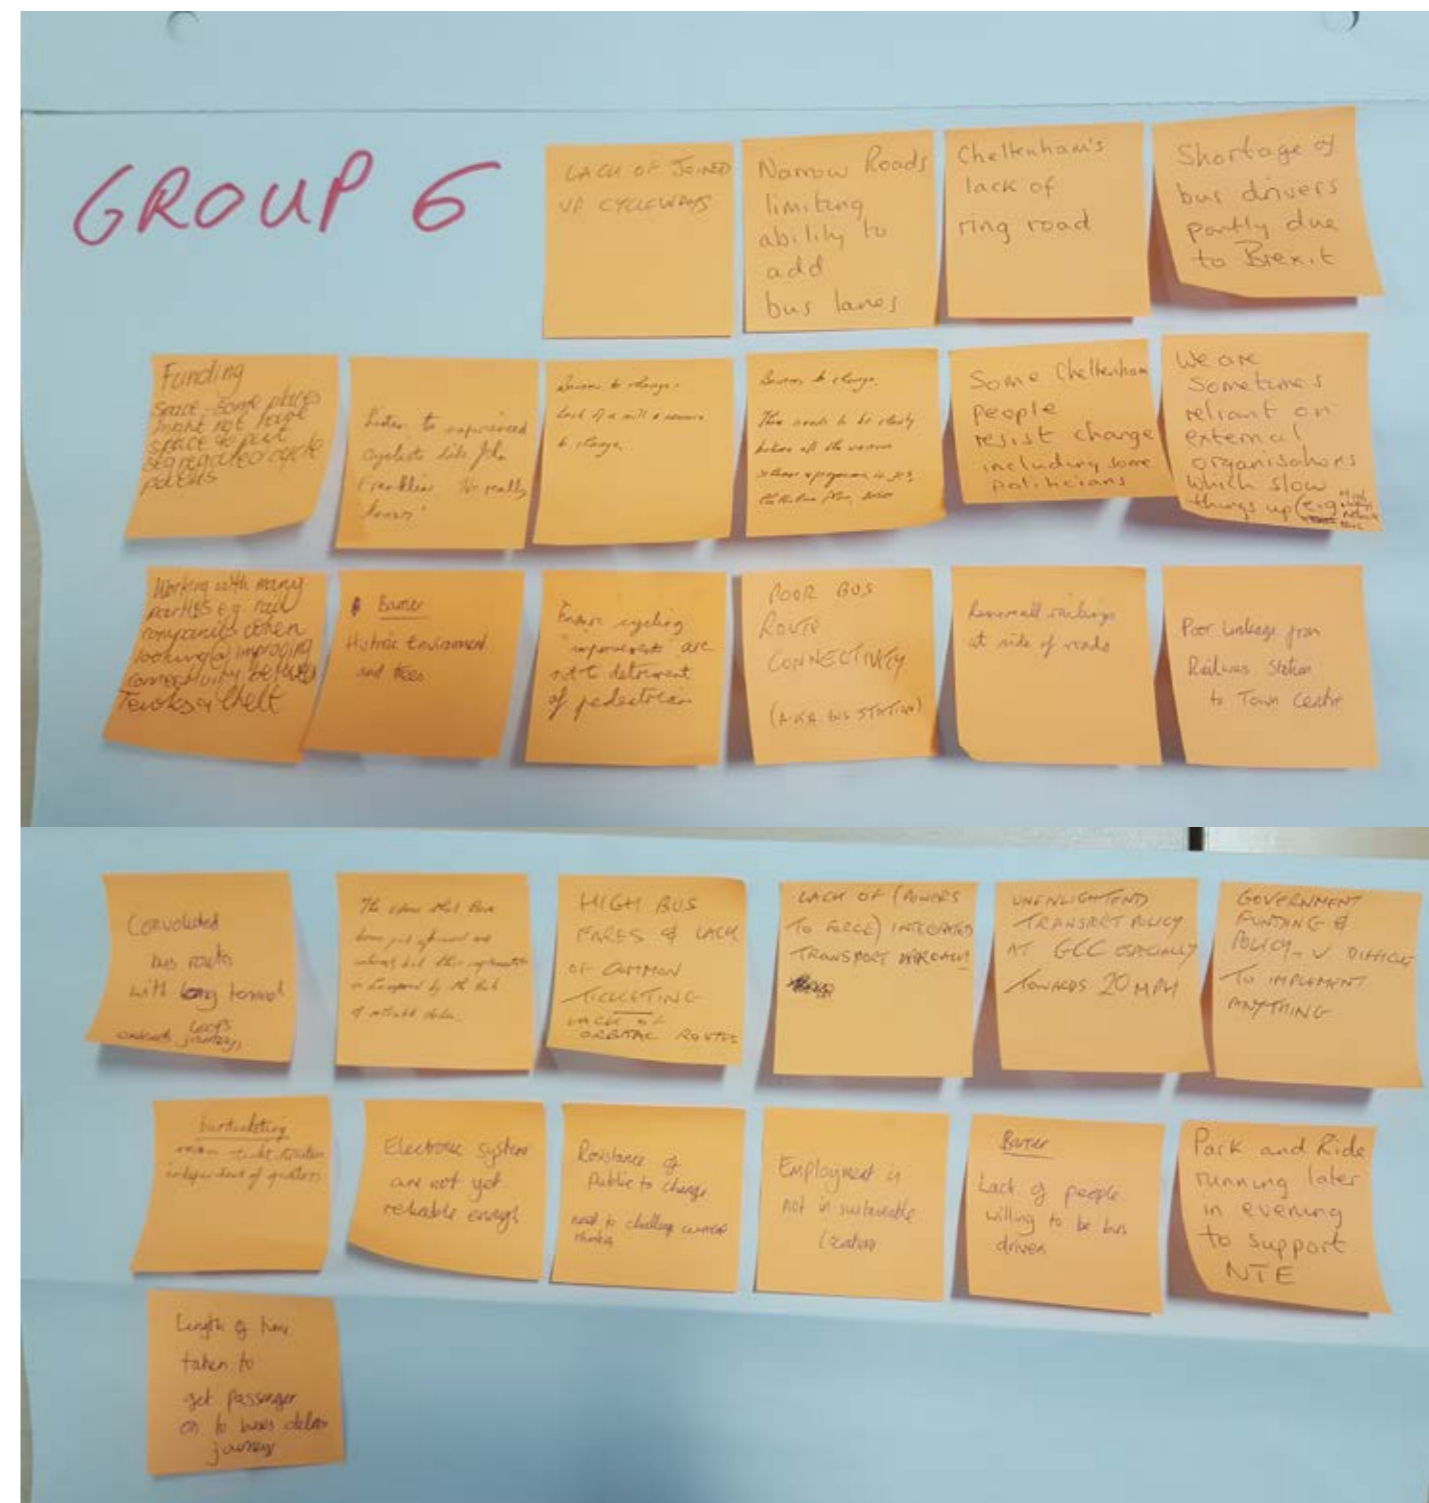 GROUP 6
LACK OF JOINED
UP CYCLEWAYS
Narrow Roads
limiting
ability to
add
bus lanes
Cheltenham's
lack of
ring road
Shortage of
bus drivers
partly due
to Brexit
Funding
Space - Some places
might not have
space to put
segregated cycle
paths
Listen to experienced
cyclists like John
Franklin. He really
knows!
Barriers to change.
Lack of a will
to change.
Barriers to change.
There needs to be clarity
Some Cheltenham
people
resist change
including some
politicians
We are
sometimes
reliant on
external
organisations
which slow
things up (e.g.
Working with many
parties e.g. rail
companies when
looking @ improving
connectivity between
Tewks & Chelt
Barrier
Historic Environment
and trees
Ensure cycling
"improvements" are
not to detriment
of pedestrian
POOR BUS
ROUTE
CONNECTIVITY
(A.K.A BUS STATION)
Remove all railings
at side of roads
Poor linkage from
Railway Station
to Town Centre
Convoluted
bus routes
with long
loops
journeys
The ideas that have
been put forward are
by the lack
of reliable data.
HIGH BUS
FARES & LACK
OF COMMON
TICKETING
LACK OF
ORBITAL ROUTES
LACK OF (POWERS
TO FORCE) INTEGRATED
TRANSPORT APPROACH
UNENLIGHTEND
TRANSPORT POLICY
AT GCC ESPECIALLY
TOWARDS 20 MPH
GOVERNMENT
FUNDING &
POLICY - V DIFFICULT
TO IMPLEMENT
ANYTHING
independent of operators
Electronic system
are not yet
reliable enough
Resistance of
Public to change
need to challenge current
thinking
Employment is
not in sustainable
location
Barrier
Lack of people
willing to be bus
drivers
Park and Ride
running later
in evening
to support
NTE
Length of time
taken to
get passenger
on to buses delay
journey